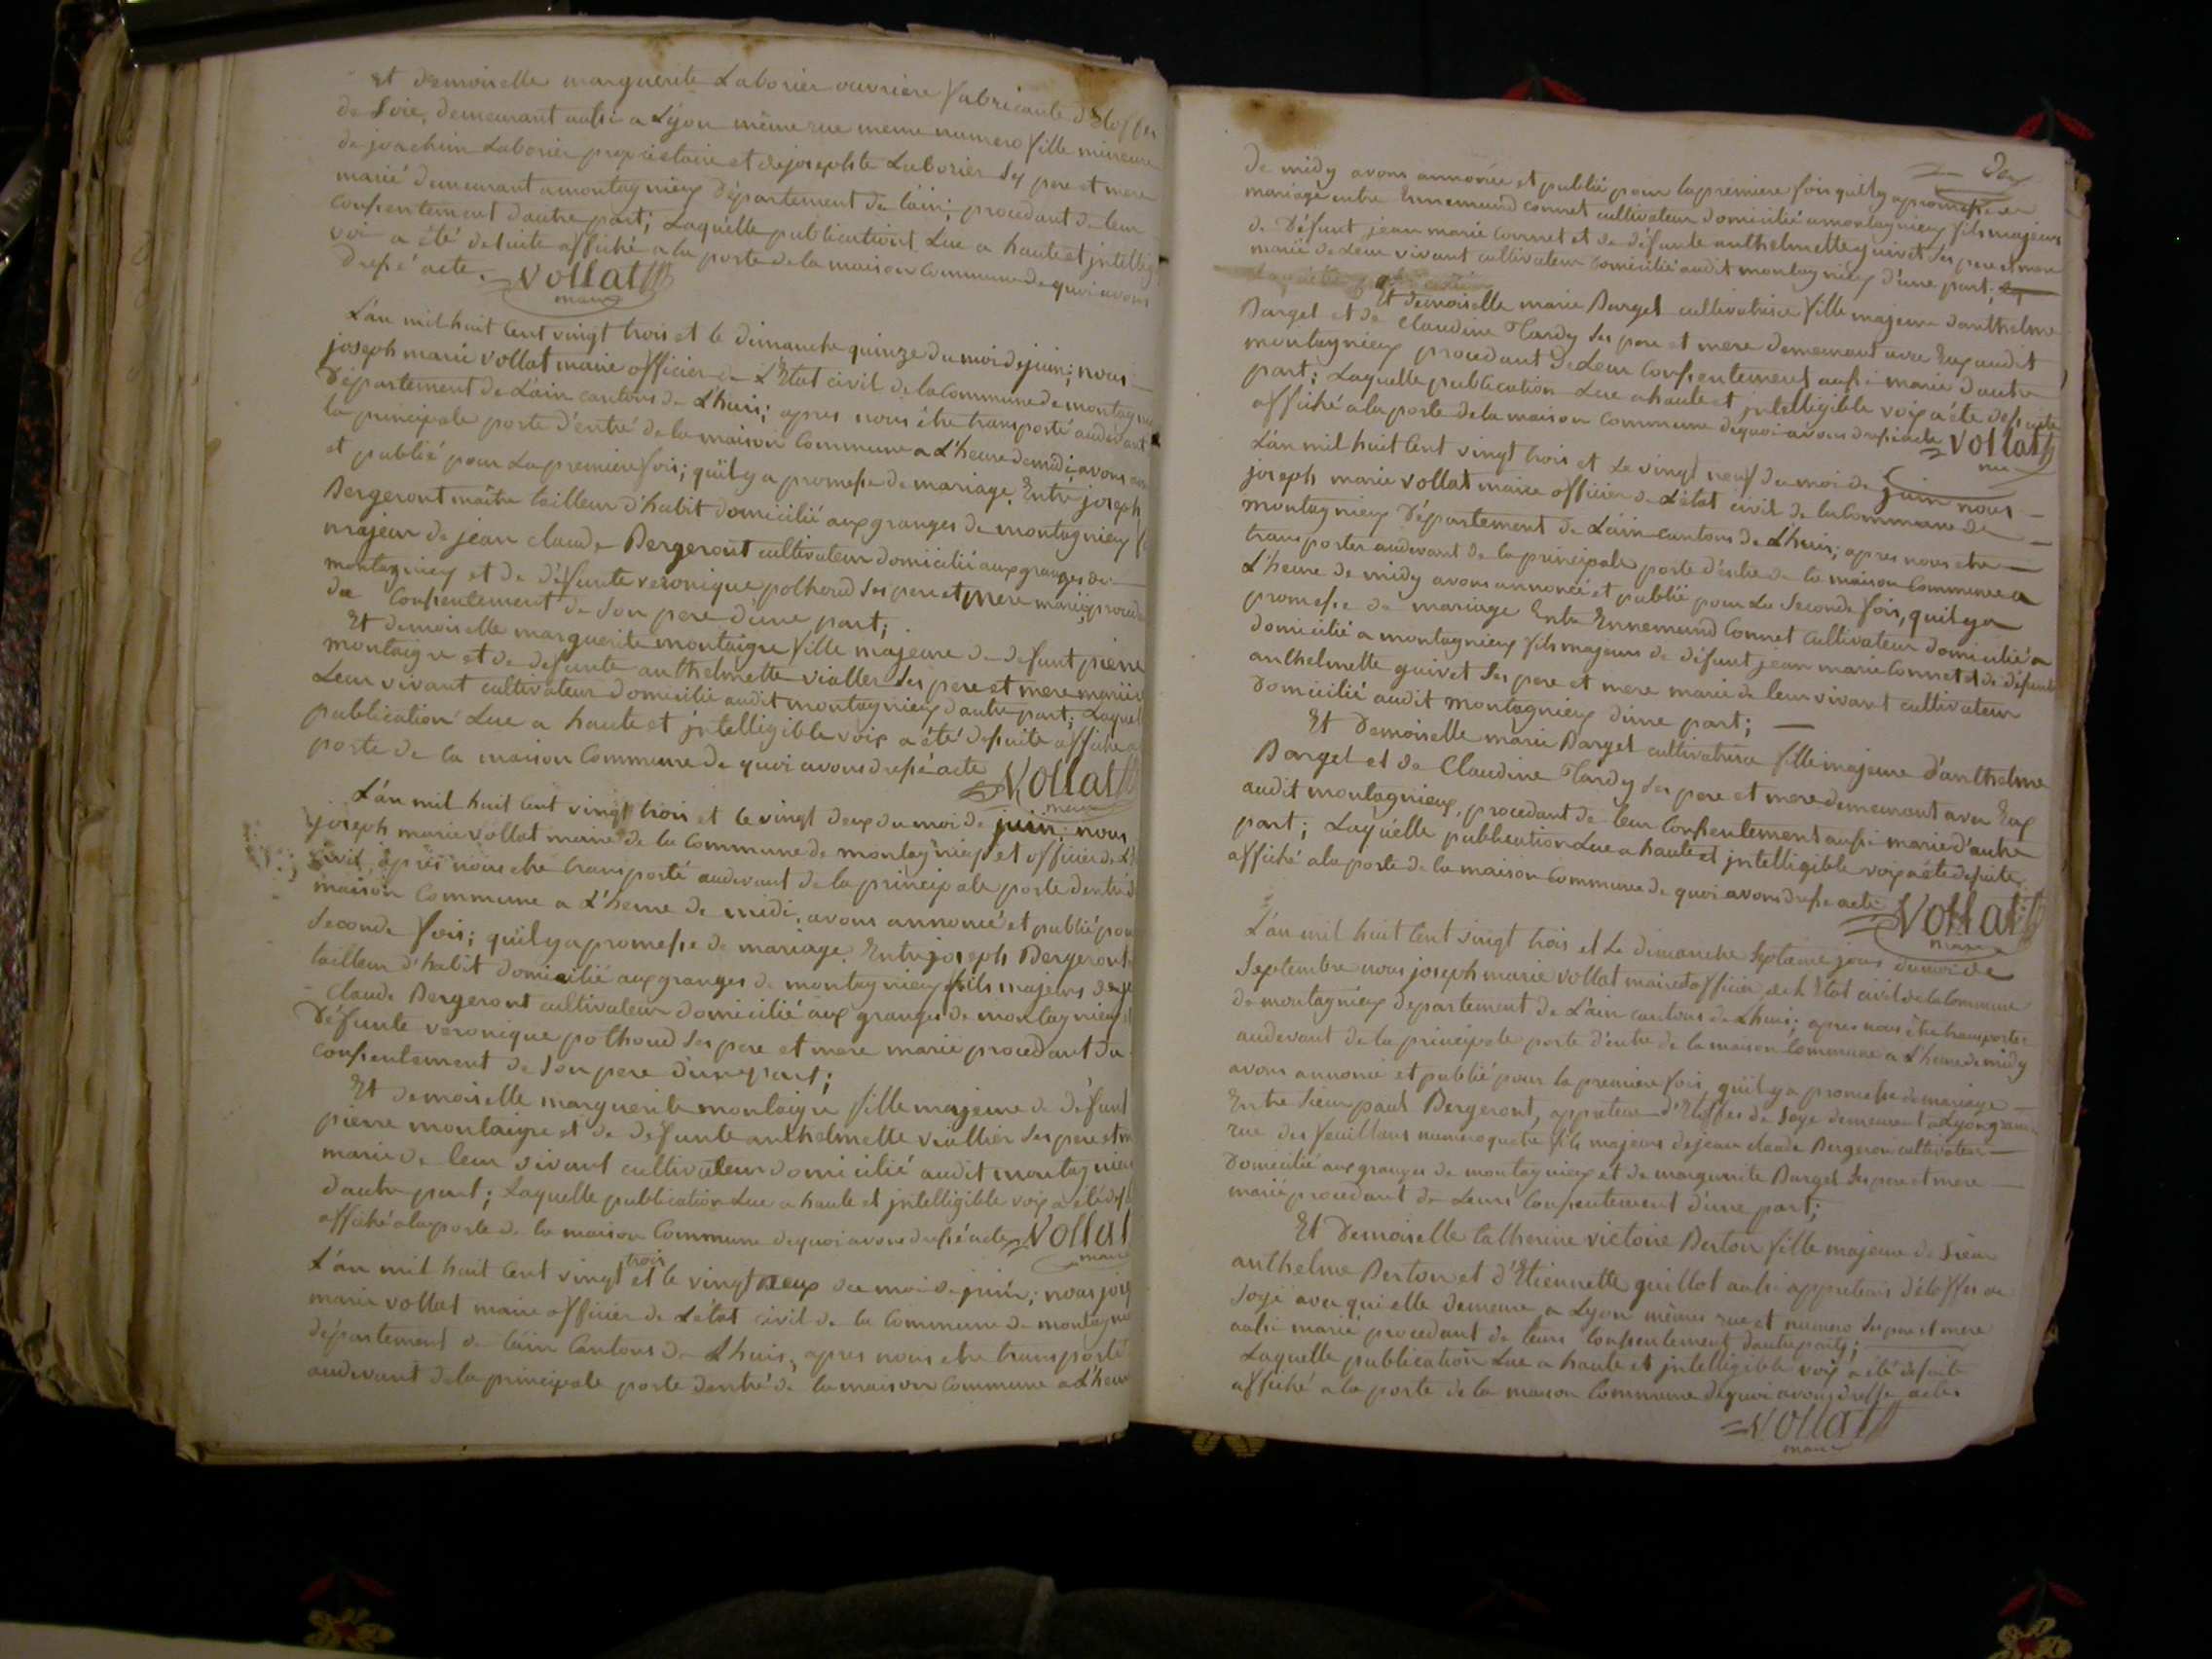 et demoiselle marguerite Laborier ouvriere fabricante d'Etoffes
de Soie, demeurant aussi a Lyon même rue meme numero fille mineure
de joachim Laborier propriétaire et de josephte Laborier Ses pere et mere
marié demeurant a montagnieux département de l'ain; procedant de leur
consentement d'autre part; Laquélle publication Lue a haute et jntellig
voix a été de suite affiché a la porte de la maison Commune de quoi avons
dressé acte. Vollat
maire
L'an mil huit Cent vingt trois et le dimanche quinze du moi de juin; nous
joseph marie vollat maire officier de L'Etat civil de la Commune de montagnieu
Département de L'ain cantons de L'huis; apres nous être transporté audevant
la principale porte d'entré de la maison Commune a L'heure de midi, avons
et publié pour La premiere fois; qu'il y a promesse de mariage, Entre joseph
Bergeront maître tailleur d'habit domicilié aux granges de montagnieux
majeur de jean claude Bergeront cultivateur domicilié aux granges de
montagnieux et de défunte veronique polhoud Ses pere et mere marié, procedan
du Consentement de Son pere d'une part;
Et demoiselle marguerite montaigre fille majeure de defunt pierre
montaigre et de defunte anthelmette viallier Ses pere et mere marié de
Leur vivant cultivateur domicilié audit montagnieux d'autre part; Laquel
publication Lue a haute et jntelligible voix a été de suite affiché a
porte de la maison Commune de quoi avons dressé acte Vollat
maire
L'an mil huit Cent vingt trois et le vingt deux du moi de juin; nous
joseph marie vollat maire de la Commune de montagnieux et officier de L'
civil, après nous etre transporté audevant de la principale porte d'entré d
maison Commune a L'heure de midi, avons annoncé et publié pour
Seconde fois; qu'il y a promesse de mariage, Entre joseph Bergeront
tailleur d'habit domicilié aux granges de montagnieux fils majeurs de je
claude Bergeront cultivateur domicilié aux granges de montagnieux et
défunte veronique polhoud Ses pere et mere marié procedant du
consentement de Son pere d'une part;
Et demoiselle marguerite montaigre fille majeure de défunt
pierre montaigre et de défunte anthelmette viallier Ses pere et m
marié de leur vivant cultivateur domicilié audit montagnieu
d'autre part; Laquelle publication Lue a haute et jntelligible voix a été de
affiché a la porte de la maison Commune de quoi avons dressé acte Vollat
maire
L'an mil huit Cent vingt trois et le vingt deux du moi de juin; nous jos
marie vollat maire officier de L'état civil de la Commune de montagnie
département de l'ain Cantons de L'huis, apres nous etre transporté
audevant de la principale porte d'entré de la maison Commune a L'heur
Deux
de midy avons annoncée et publié pour la premiere fois qu'il y a promesse de
mariage entre Ennemund Connet cultivateur domicilié a montagnieux fils majeurs
de défunt jean marie Connet et de défunte anthelmette guivet Ses pere et mere
marié de Leur vivant cultivateur domicilié audit montagnieux d'une part;
Et demoiselle marie Barget cultivatrice fille majeure d'anthelme
Barget et de Claudine Tardy Ses pere et mere demeurant avec Eux audit
montagnieux procedant de Leur Consentement aussi marié d'autre
part; Laquelle publication Lue a haute et jntelligible voix a été de suite
affiché a la porte de la maison Commune de quoi avons dressé acte Vollat
L'an mil huit Cent vingt trois et Le vingt neuf du moi de juin nous
joseph marie vollat maire officier de L'état civil de la Commune de
montagnieux département de L'ain cantons de L'huis; apres nous etre
transporter audevant de la principale porte d'entre de la maison Commune a
L'heure de midy avons annoncé et publié pour La Seconde fois, qu'il y a
promesse de mariage Entre Ennemund Connet Cultivateur domicilié a
domicilié a montagnieux fils majeurs de défunt jean marie Connet et de défunte
anthelmette guivet Ses pere et mere marié de leur vivant cultivateur
domicilié audit montagnieux d'une part;
Et Demoiselle marie Barget cultivatrice fille majeure d'anthelme
Barget et de Claudine Tardy Ses pere et mere demeurant avec Eux
audit montagnieux, procedant de leur Consentement aussi marié d'autre
part; Laquélle publication Lue a haute et jntelligible voix a été de suite
affiché a la porte de la maison Commune de quoi avons dressé acte Vollat
maire
L'an mil huit Cent vingt trois et Le dimanche Septieme jour du moi de
Septembre nous joseph marie vollat maire et officier de L'Etat civil de la Commune
de montagnieux departement de L'ain cantons de Lhuis; apres nous être transporter
audevant de la principale porte d'entre de la maison Commune a L'heure de midy
avons annoncé et publié pour la premiere fois, qu'il y a promesse de mariage
Entre Sieur paul Bergeront, appreteur d'Etoffes de Soye demeurant a Lyon grande
rue des feuillans numero quatre fils majeurs de jean claude Bergeron cultivateur
Domicilié aux granges de montagnieux et de marguerite Barget Ses pere et mere
marié procedant de Leurs Consentement d'une part;
Et Demoiselle Catherine victoire Berton fille majeure de Sieur
anthelme Berton et d'Etiennette guillot aussi appreteurs d'étoffes de
Soye avec qui elle demeure a Lyon mêmes rue et numero Ses pere et mere
aussi marié procedant de leurs Consentement d'autre part;
Laquelle publication Lue a haute et jntelligible voix a été de suite
affiché a la porte de la maison Commune de quoi avons dressé acte.
Vollat
maire